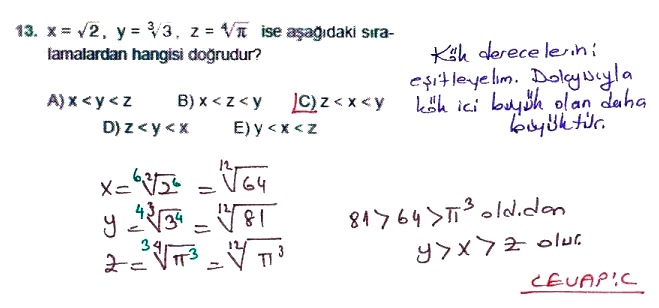 13. x = √2, y = ³√3, z = ⁴√π ise aşağıdaki sıra-
lamalardan hangisi doğrudur?
A) x < y < z B) x < z < y C) z < x < y
D) z < y < x E) y < x < z
Kök derecelerini
eşitleyelim. Dolayısıyla
kök içi büyük olan daha
büyüktür.
x = ⁶·²√2⁶ = ¹²√64
y = ⁴·³√3⁴ = ¹²√81
z = ³·⁴√π³ = ¹²√π³
81 > 64 > π³ old.dan
y > x > z olur.
CEVAP: C